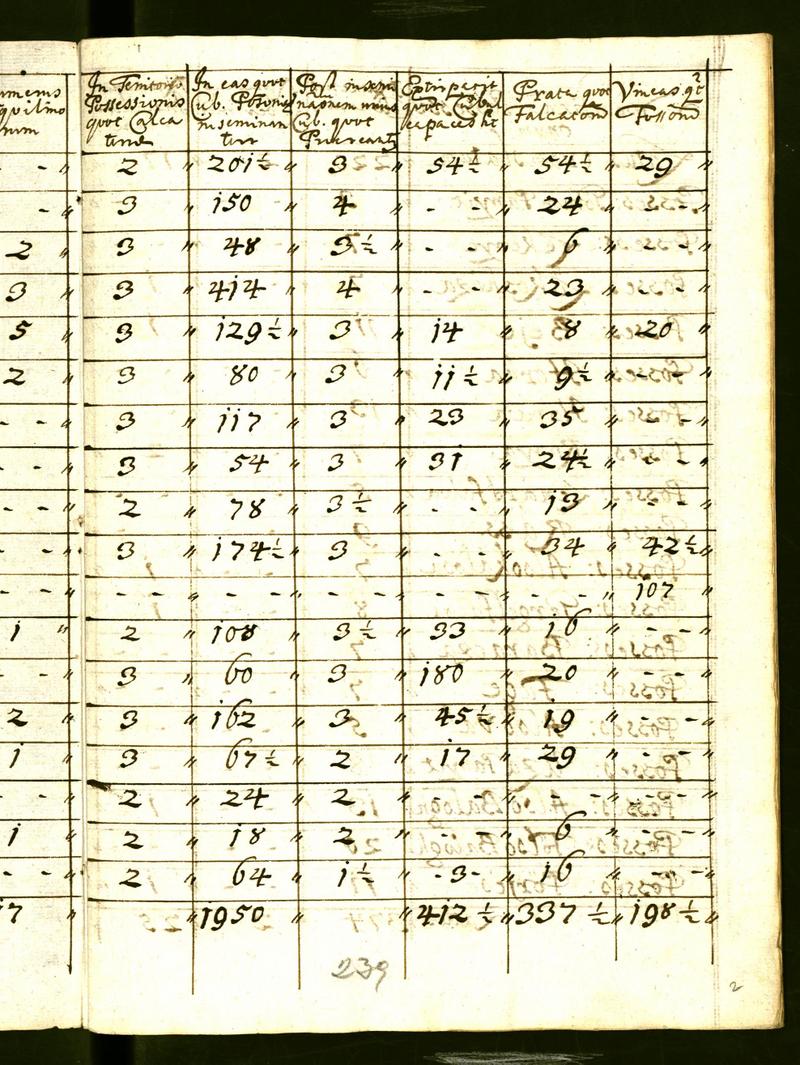 In Territorio Possessionis quot Calca turae | In eas quot Cub. Posonie: inseminan tur | Post insemi nãonem unius Cub. quot Procreant | Extirpatit quot Cubul capaces st | Prata quot Falcatorũ | Vineas qt Fossorũ
- - " 2 " 201½ " 3 " 54½ " 54½ " 29 "
- " 3 " 150 " 4 " - - " 24 " - - "
2 " 3 " 48 " 3½ " - - " 6 " - - "
3 " 3 " 414 " 4 " - - " 23 " - - "
5 " 3 " 129½ " 3 " 14 " 8 " 20 "
2 " 3 " 80 " 3 " 11½ " 9½ " - - "
- - " 3 " 117 " 3 " 23 " 35 " - - "
- - " 3 " 54 " 3 " 31 " 24½ " - - "
- - " 2 " 78 " 3½ " - - " 13 " - - "
- - " 3 " 174½ " 3 " - - " 34 " 42½ "
- - " - - " - - " - - " - - " - - " 107 "
1 " 2 " 108 " 3½ " 33 " 16 " - - "
- - " 3 " 60 " 3 " 180 " 20 " - - "
2 " 3 " 162 " 3 " 45½ " 19 " - - "
1 " 3 " 67½ " 2 " 17 " 29 " - - "
- - " 2 " 24 " 2 " - - " - - " - - "
1 " 2 " 18 " 2 " - - " 6 " - - "
- - " 2 " 64 " 1½ " - 3 - " 16 " - - "
7 " " 1950 " " 412½ " 337½ " 198½ "
239
2